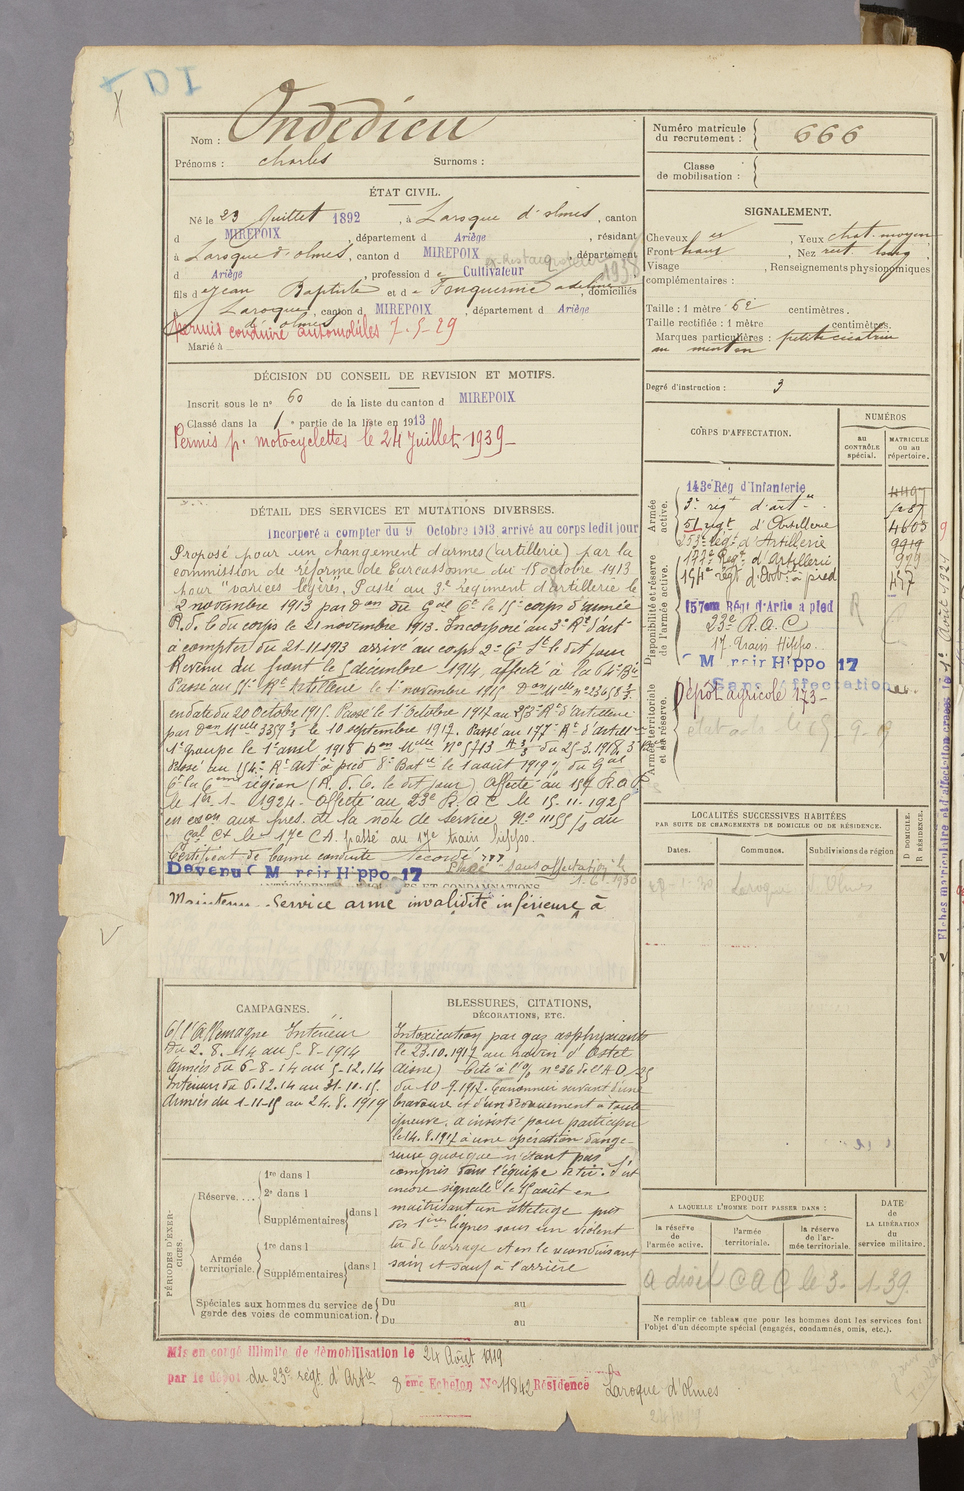 Nom : Ondedieu
Prénoms : Charles Surnoms :
Numéro matricule du recrutement : 666
Classe de mobilisation :
ÉTAT CIVIL.
Né le 23 Juillet 1892, à Laroque d'olmes, canton
d MIREPOIX, département d Ariège, résidant
à Laroque d'olmes, canton d MIREPOIX, département
d Ariège, profession de Cultivateur
1938
fils de Jean Baptiste et de Adeline, domiciliés
Laroque d'olmes, canton d MIREPOIX, département d Ariège
Permis conduire automobiles 7-5-29
Marié à
SIGNALEMENT.
Cheveux, Yeux chat. moyen
Front haut, Nez rect. long
Visage, Renseignements physionomiques
complémentaires :
Taille : 1 mètre 62 centimètres.
Taille rectifiée : 1 mètre centimètres.
Marques particulières : petite cicatrice
au menton
Degré d'instruction : 3
DÉCISION DU CONSEIL DE REVISION ET MOTIFS.
Inscrit sous le n° 60 de la liste du canton d MIREPOIX
Classé dans la 1e partie de la liste en 1913
Permis p. motocyclettes le 24 Juillet 1939-
DÉTAIL DES SERVICES ET MUTATIONS DIVERSES.
Incorporé à compter du 9 Octobre 1913 arrivé au corps ledit jour
Proposé pour un changement d'armes (artillerie) par la
commission de réforme de Carcassonne du 15 octobre 1913
pour "varices légères". Passé au 3e régiment d'artillerie le
2 novembre 1913 par don du Gal Ct le 15e corps d'armée
R. d. C du corps le 21 novembre 1913. Incorporé au 3e Rt d'art
à compter du 21.11.1913 arrivé au corps 2e Ct St le dit jour
Revenu du front le 5 décembre 1914, affecté à la 64e Bie
Passé au 51e Rt Artillerie le 1e novembre 1915
en date du 20 Octobre 1915. Passé le 1e Octobre 1917 au 253e Rt d'artillerie
par don Mlle 3359 le 10 septembre 1917. Passé au 177e Rt d'artill
1e groupe le 1e avril 1918 Don Mlle No 5713 du 25-3-1918
Passé au 154e Rt art à pied 8e Batie le 1 août 1919 du Gal
Ct la 6eme région (R. d. C. le dit jour) Affecté au 154 R.A.P.
le 1er-1-1924- Affecté au 23e R.A.C le 15.11.1925
en exon aux pres. de la note de service No 11155/s du
Gal Ct le 17e CA. passé au 17e train hippo.
Certificat de bonne conduite accordé
Placé sans affectation le
1.6.1930
Devenu C M Hippo 17
ANTÉCÉDENTS JUDICIAIRES ET CONDAMNATIONS
Maintenu Service armé invalidité inférieure à
CORPS D'AFFECTATION.
NUMÉROS
au CONTRÔLE spécial.
MATRICULE ou au répertoire.
Armée active.
143e Rég d'Infanterie
3e rigt d'artie
51 rigt d'Artillerie 4603
253e régt d'Artillerie
177e Regt d'Artillerie
154e régt d'art à pied 457
Disponibilité et réserve de l'armée active.
157em Régt d'Artie à pied
23e R.A.C
17 Train Hippo.
C M Hippo 17
Sans affectation
Armée territoriale et sa réserve.
Dépôt agricole 173-
Fiches matriculaire et d'affectation créées le 1er Août 1921
LOCALITÉS SUCCESSIVES HABITÉES
PAR SUITE DE CHANGEMENTS DE DOMICILE OU DE RÉSIDENCE.
Dates. Communes. Subdivisions de région
D DOMICILE. R RÉSIDENCE.
Laroque d'Olmes
CAMPAGNES.
C/ l'Allemagne Intérieur
du 2.8.14 au 5-8-1914
Armées du 6-8-14 au 5-12.14
Intérieur du 6.12.14 au 31.10.15.
Armées du 1-11-15 au 24.8.1919
BLESSURES, CITATIONS,
DÉCORATIONS, ETC.
Intoxication par gaz asphyxiants
le 23.10.1917 au ravin d'Ostel
(Aisne) Cité à l'O/ n° 36 de l'AD/
du 10-9.1917. Canonnier servant d'une
bravoure et d'un dévouement à toute
épreuve. a insisté pour participer
le 14.8.1917 à une opération dange-
reuse quoique n'étant pas
compris dans l'équipe de tir. S'est
encore signalé le 15 août en
maîtrisant un attelage pris
des 1ères lignes sous un violent
tir de barrage et en le reconduisant
sain et sauf à l'arrière
PÉRIODES D'EXERCICES.
Réserve....
1re dans l
2e dans l
Supplémentaires dans l
Armée territoriale.
1re dans l
Supplémentaires dans l
Spéciales aux hommes du service de garde des voies de communication.
Du au
Du au
EPOQUE
A LAQUELLE L'HOMME DOIT PASSER DANS :
la réserve de l'armée active.
l'armée territoriale.
la réserve de l'armée territoriale.
DATE de LA LIBÉRATION du service militaire.
a droit C A C le 3-1-39.
Ne remplir ce tableau que pour les hommes dont les services font
l'objet d'un décompte spécial (engagés, condamnés, omis, etc.).
Mis en congé illimité de démobilisation le 24 Août 1919
par le dépôt du 23e régt. d'Artie 8eme Echelon No 11842 Résidence Laroque d'olmes